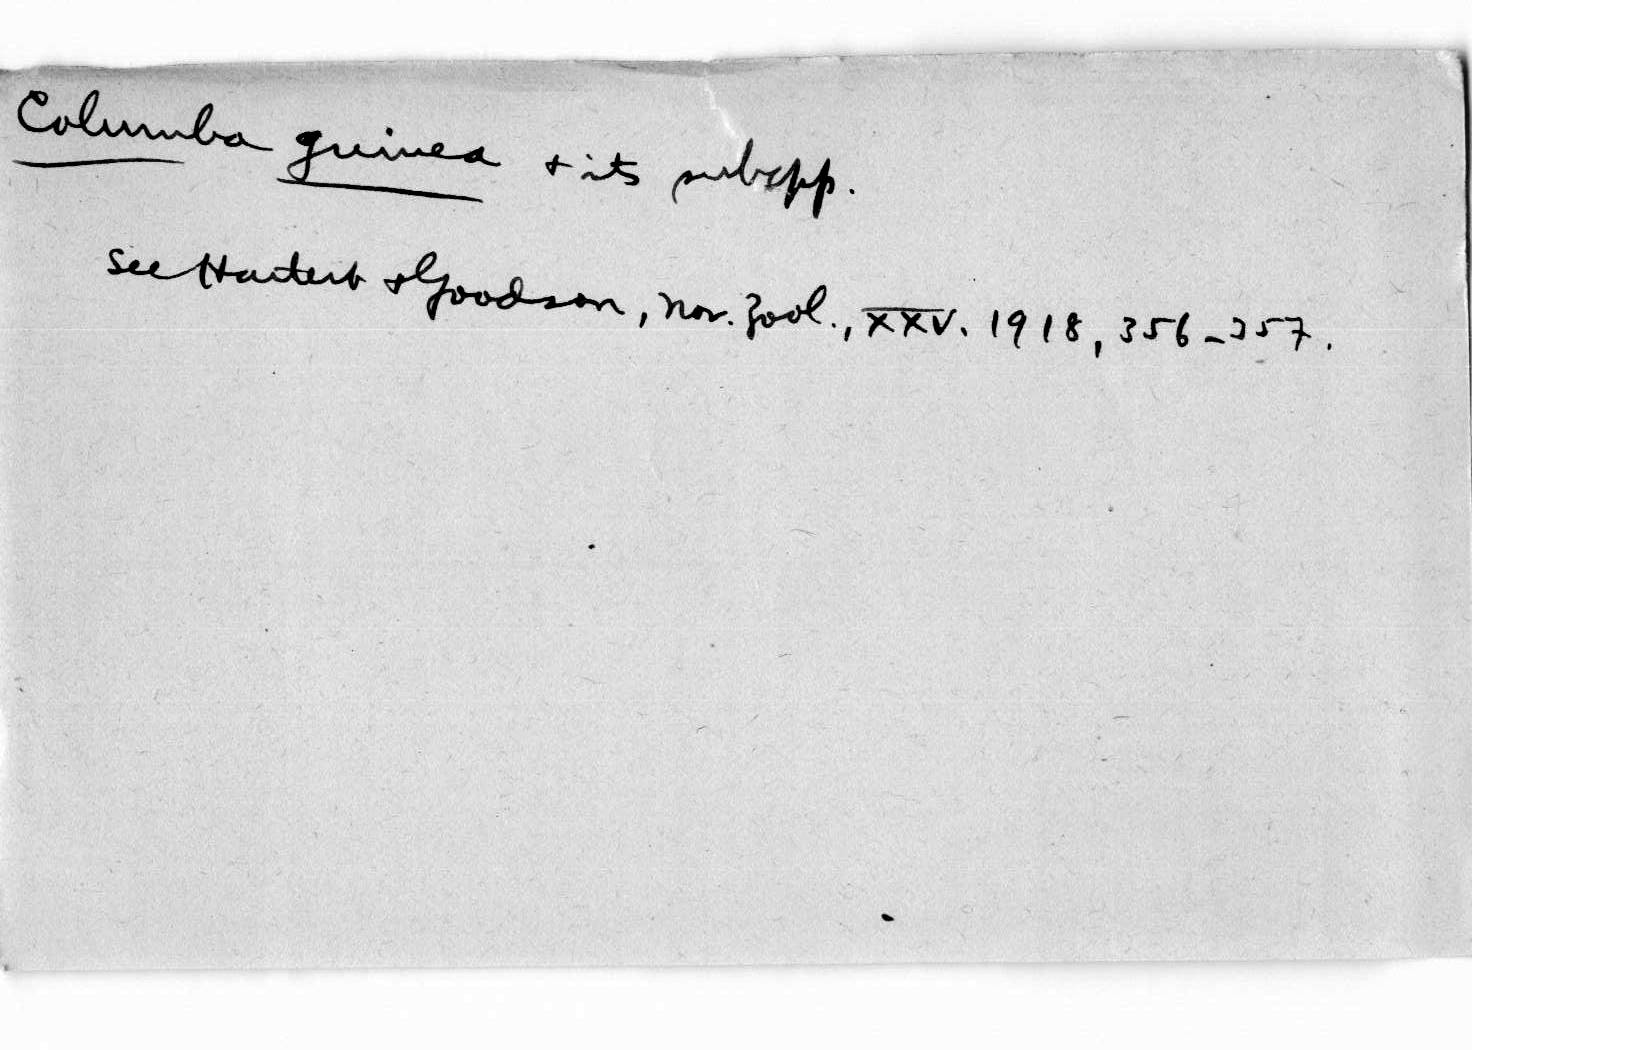 Columba guinea + its subspp.
See Hartert + Goodson, Nov. Zool., XXV. 1918, 356-357.